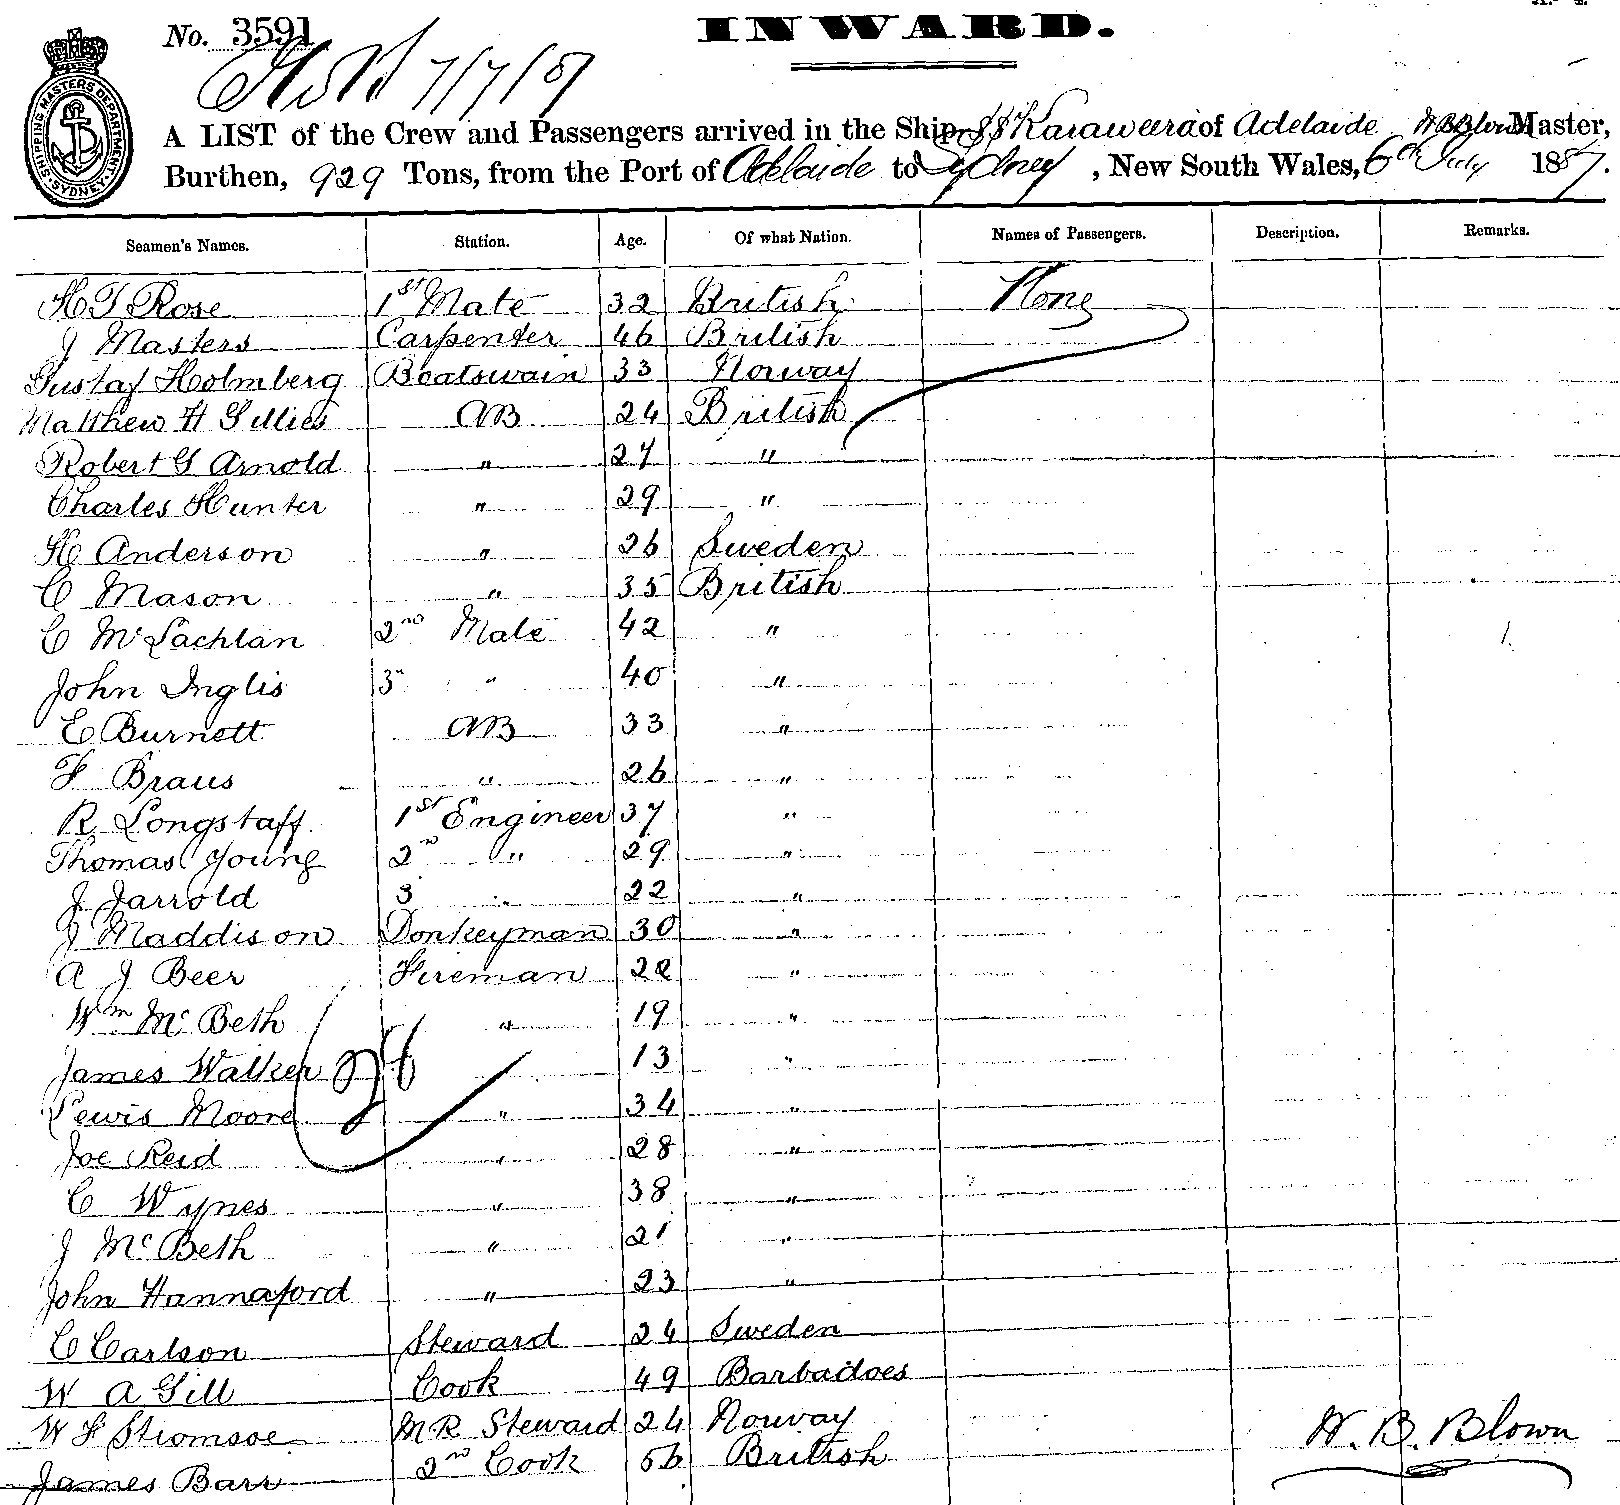 No. 3591
INWARD.
7/7/87
SHIPPING MASTERS DEPARTMENT SYDNEY
A LIST of the Crew and Passengers arrived in the Ship SS Karaweera of Adelaide W B Blown Master,
Burthen, 929 Tons, from the Port of Adelaide to Sydney, New South Wales, 6th July 1887.
Seamen's Names. Station. Age. Of what Nation. Names of Passengers. Description. Remarks.
H T Rose 1st Mate 32 British None
J Masters Carpenter 46 British
Gustaf Holmberg Boatswain 33 Norway
Matthew H Gillies AB 24 British
Robert G Arnold " 27 "
Charles Hunter " 29 "
H Anderson " 26 Sweden
C Mason " 35 British
C McLachlan 2nd Mate 42 "
John Inglis 3rd " 40 "
E Burnett AB 33 "
F Braus " 26 "
R Longstaff 1st Engineer 37 "
Thomas Young 2nd " 29 "
J Jarrold 3 " 22 "
J Maddison Donkeyman 30 "
A J Beer Fireman 22 "
Wm McBeth " 19 "
James Walker 13 "
Lewis Moore " 34 "
Joe Reid " 28 "
C Wynes " 38 "
J McBeth " 21 "
John Hannaford " 23 "
C Carlson Steward 24 Sweden
W A Gill Cook 49 Barbadoes
W F Stromsoe M R Steward 24 Norway
James Barr 2nd Cook 56 British
W. B. Blown